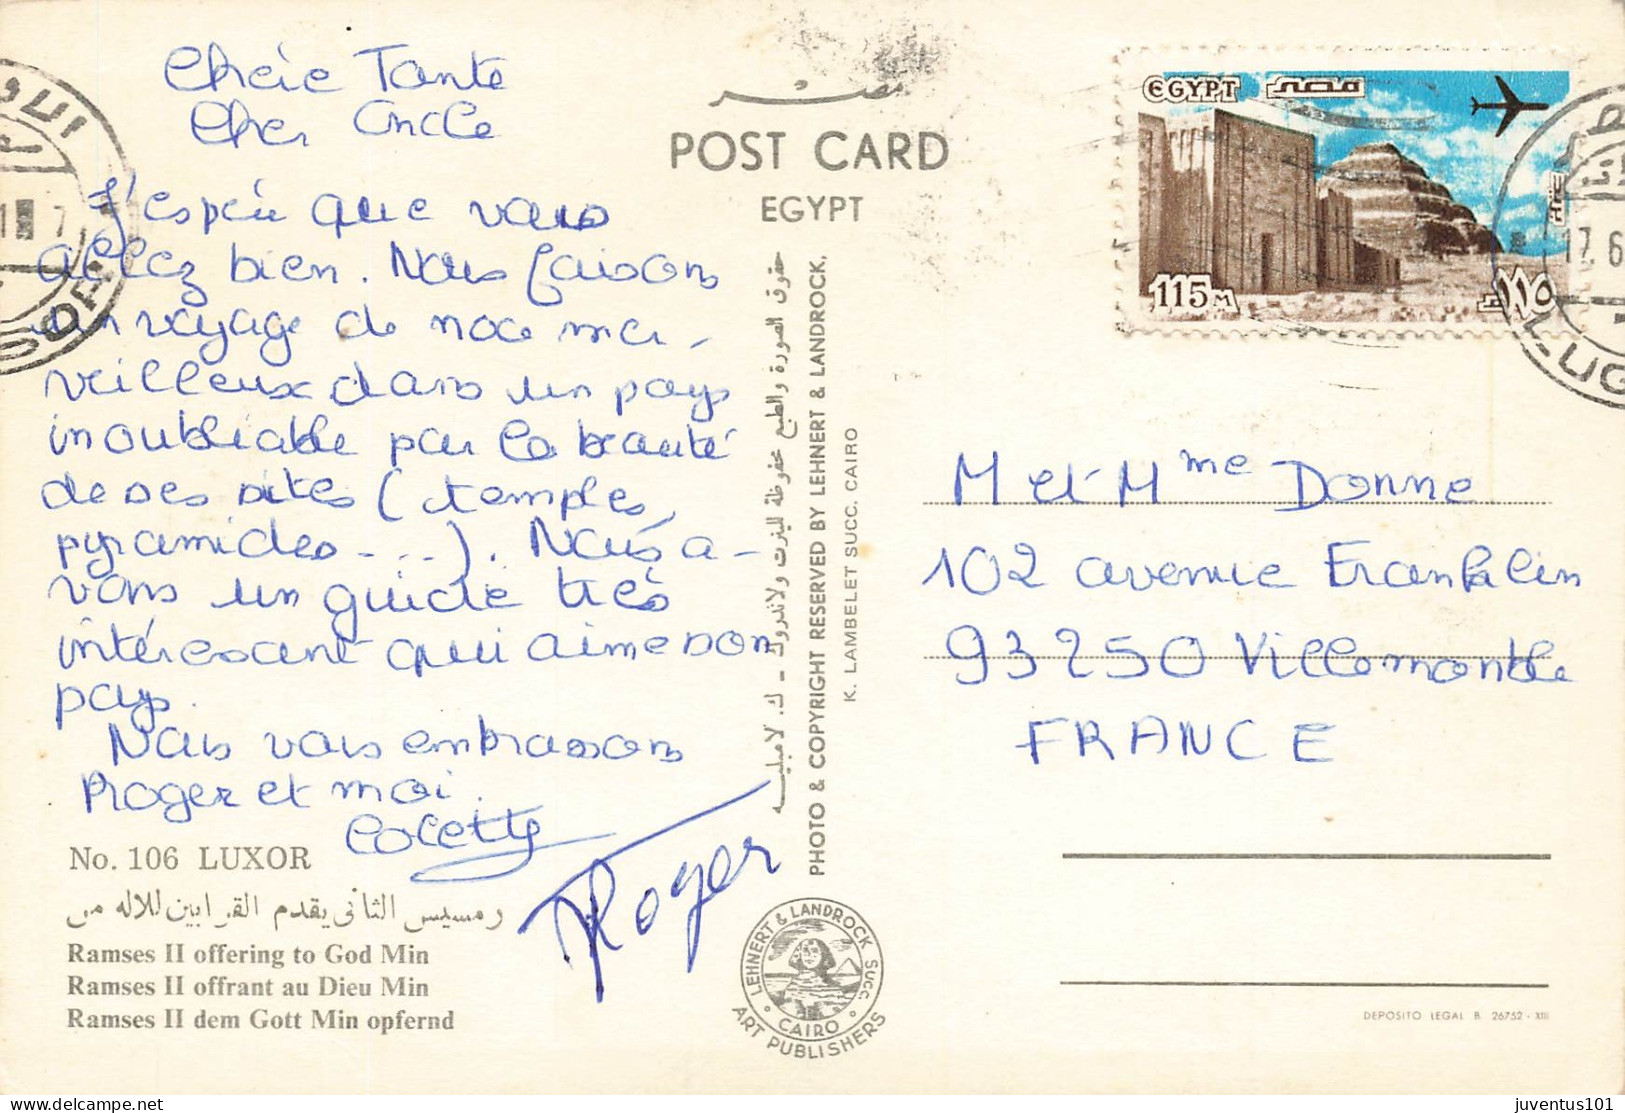 Chère Tante
Cher Oncle
J'espère que vous
allez bien. Nous faisons
un voyage de noce mer-
veilleux dans un pays
inoubliable par la beauté
de ses sites (temples,
pyramides ....). Nous a-
vons un guide très
intéressant qui aime son
pays.
Nous vous embrassons
Roger et moi.
Colette
Roger
No. 106 LUXOR
رمسيس الثانى يقدم القرابين للاله من
Ramses II offering to God Min
Ramses II offrant au Dieu Min
Ramses II dem Gott Min opfernd
مصر
POST CARD
EGYPT
حقوق الصورة والطبع محفوظة للينرت ولاندروك - ك. لامبليه
PHOTO & COPYRIGHT RESERVED BY LEHNERT & LANDROCK,
K. LAMBELET SUCC. CAIRO
LEHNERT & LANDROCK SUCC.
CAIRO
ART PUBLISHERS
EGYPT مصر
115 M ١١٥
17.6
M et Mme Donne
102 avenue Franklin
93250 Villemomble
FRANCE
DEPOSITO LEGAL B. 26752 - XIII
juventus101